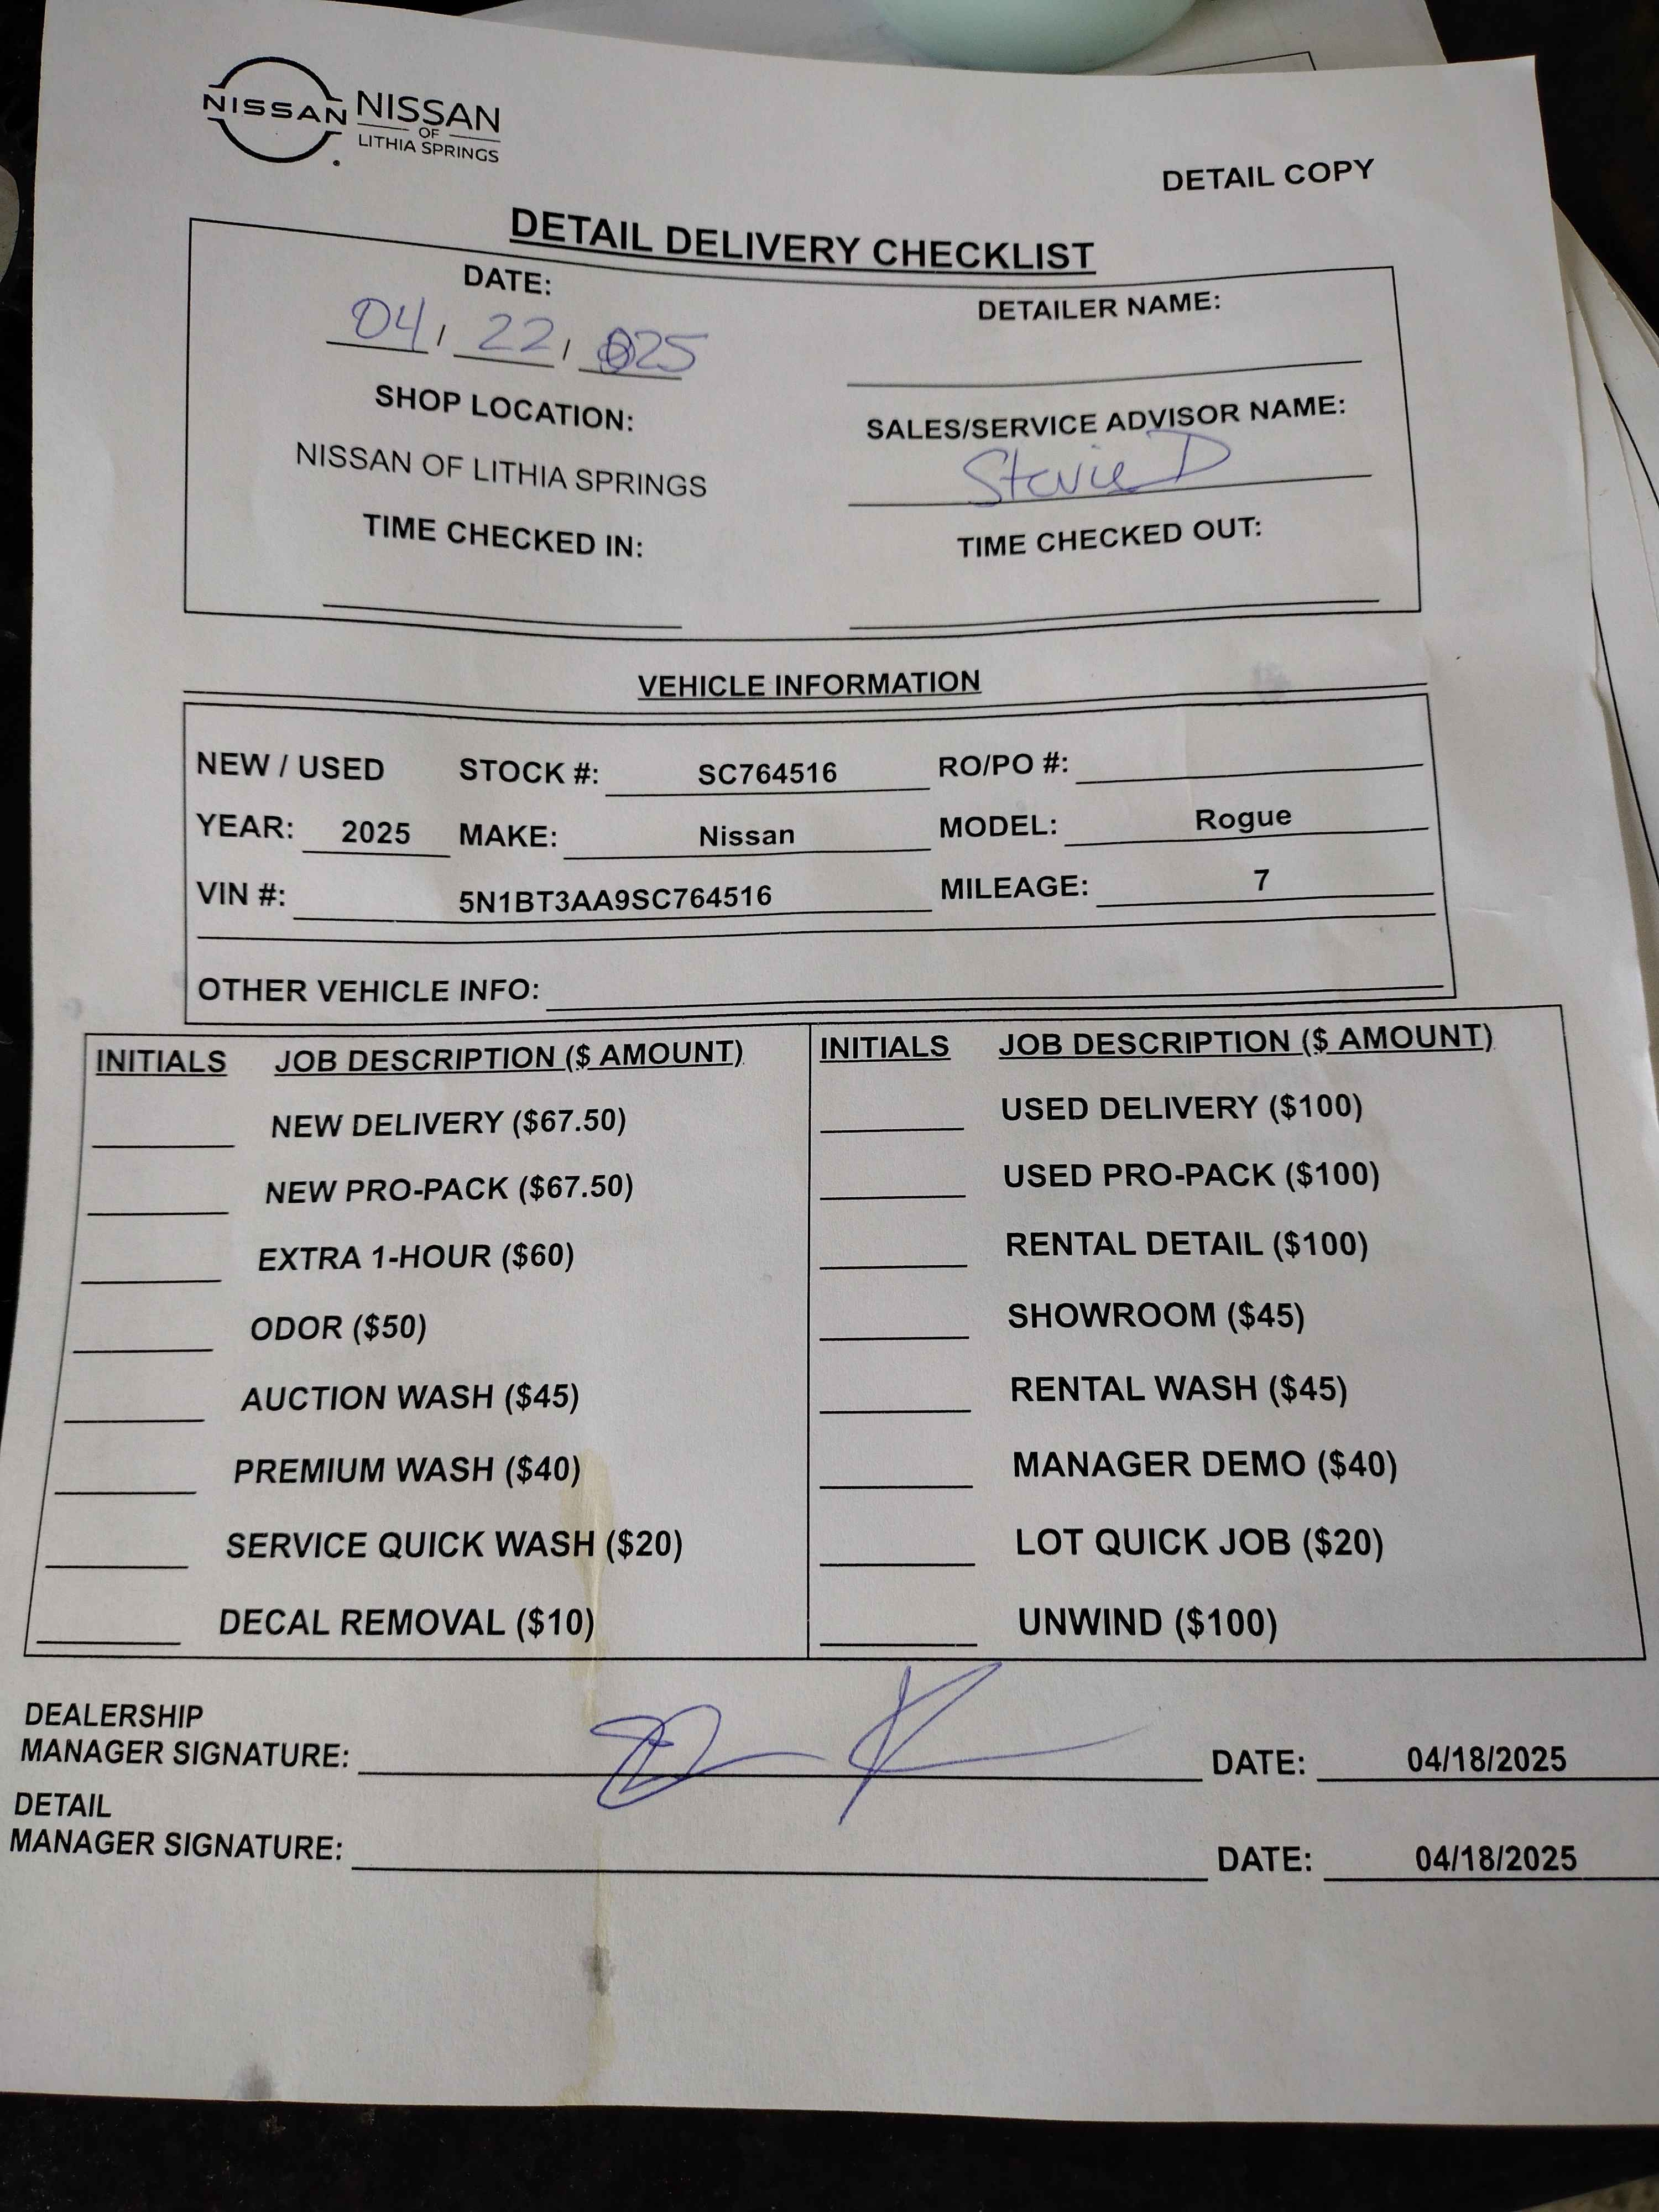 NISSAN NISSAN
OF
LITHIA SPRINGS
DETAIL COPY
DETAIL DELIVERY CHECKLIST
DATE:
04 / 22 / 025
DETAILER NAME:
SHOP LOCATION:
NISSAN OF LITHIA SPRINGS
SALES/SERVICE ADVISOR NAME:
Stevie D
TIME CHECKED IN:
TIME CHECKED OUT:
VEHICLE INFORMATION
NEW / USED STOCK #: SC764516 RO/PO #:
YEAR: 2025 MAKE: Nissan MODEL: Rogue
VIN #: 5N1BT3AA9SC764516 MILEAGE: 7
OTHER VEHICLE INFO:
INITIALS JOB DESCRIPTION ($ AMOUNT) INITIALS JOB DESCRIPTION ($ AMOUNT)
NEW DELIVERY ($67.50) USED DELIVERY ($100)
NEW PRO-PACK ($67.50) USED PRO-PACK ($100)
EXTRA 1-HOUR ($60) RENTAL DETAIL ($100)
ODOR ($50) SHOWROOM ($45)
AUCTION WASH ($45) RENTAL WASH ($45)
PREMIUM WASH ($40) MANAGER DEMO ($40)
SERVICE QUICK WASH ($20) LOT QUICK JOB ($20)
DECAL REMOVAL ($10) UNWIND ($100)
DEALERSHIP
MANAGER SIGNATURE: DATE: 04/18/2025
DETAIL
MANAGER SIGNATURE: DATE: 04/18/2025